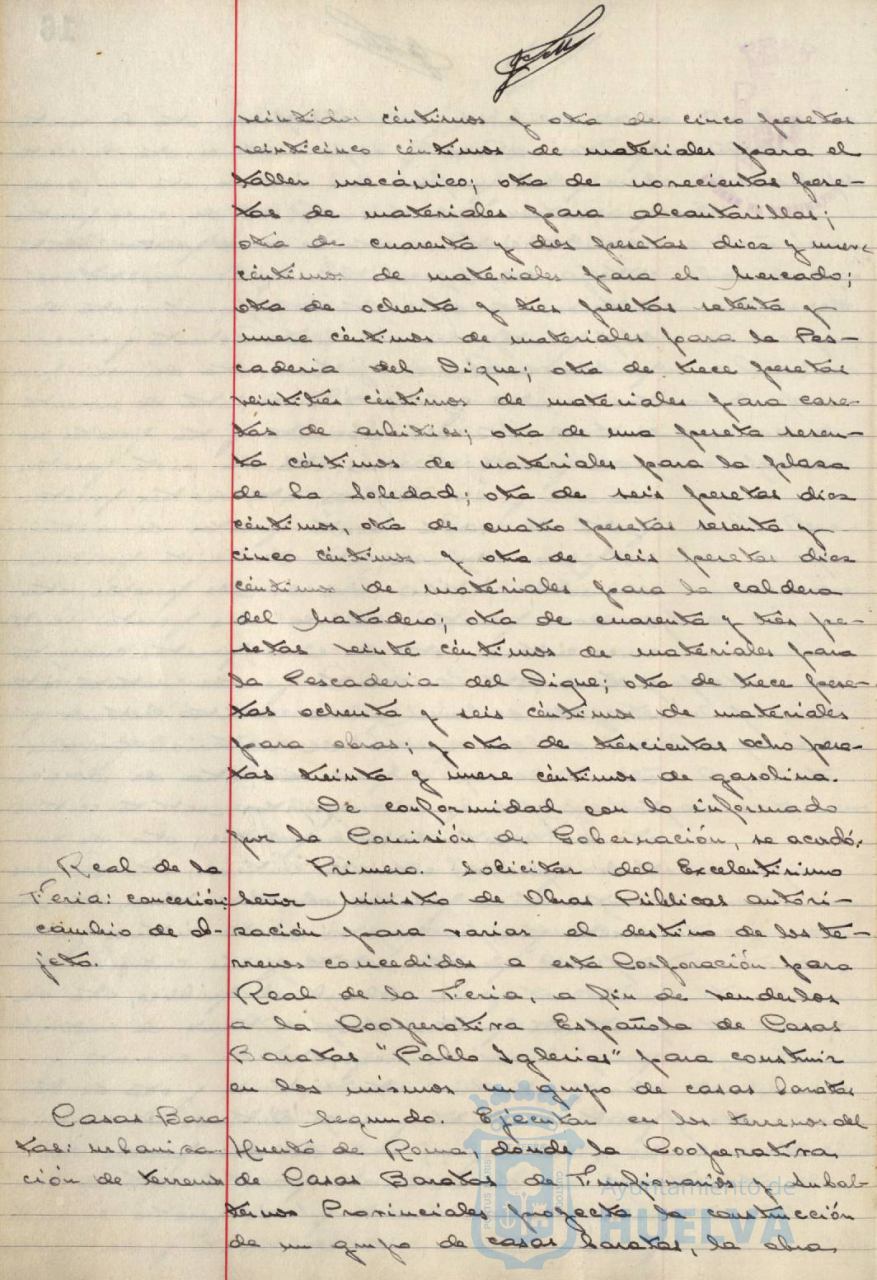 veintidos céntimos y otra de cinco pesetas
veinticinco céntimos de materiales para el
taller mecánico; otra de novecientas pese-
tas de materiales para alcantarillas;
otra de cuarenta y dos pesetas diez y nueve
céntimos de materiales para el Mercado;
otra de ochenta y tres pesetas setenta y
nueve céntimos de materiales para la Pes-
cadería del Dique; otra de trece pesetas
veintitrés céntimos de materiales para case-
tas de arbitrios; otra de una peseta seten-
ta céntimos de materiales para la plaza
de la Soledad; otra de seis pesetas diez
céntimos, otra de cuatro pesetas sesenta y
cinco céntimos y otra de seis pesetas diez
céntimos de materiales para la caldera
del Matadero; otra de cuarenta y tres pe-
setas veinte céntimos de materiales para
la Pescadería del Dique; otra de trece pese-
tas ochenta y seis céntimos de materiales
para obras; y otra de trescientas ocho pese-
tas treinta y nueve céntimos de gasolina.
De conformidad con lo informado
por la Comisión de Gobernación, se acordó:
Real de la
Feria: concesión:
cambio de ob-
jeto.
Primero. Solicitar del Excelentísimo
Señor Ministro de Obras Públicas autori-
zación para variar el destino de los te-
rrenos concedidos a esta Corporación para
Real de la Feria, a fin de venderlos
a la Cooperativa Española de Casas
Baratas "Pablo Iglesias" para construir
en los mismos un grupo de casas baratas
Casas Bara
tas: urbaniza-
ción de terrenos
Segundo. Ejecutar en los terrenos del
Huerto de Roma, donde la Cooperativa
de Casas Baratas de Funcionarios y Subal-
ternos Provinciales proyecta la construcción
de un grupo de casas baratas, la obra
Ayuntamiento de
HUELVA